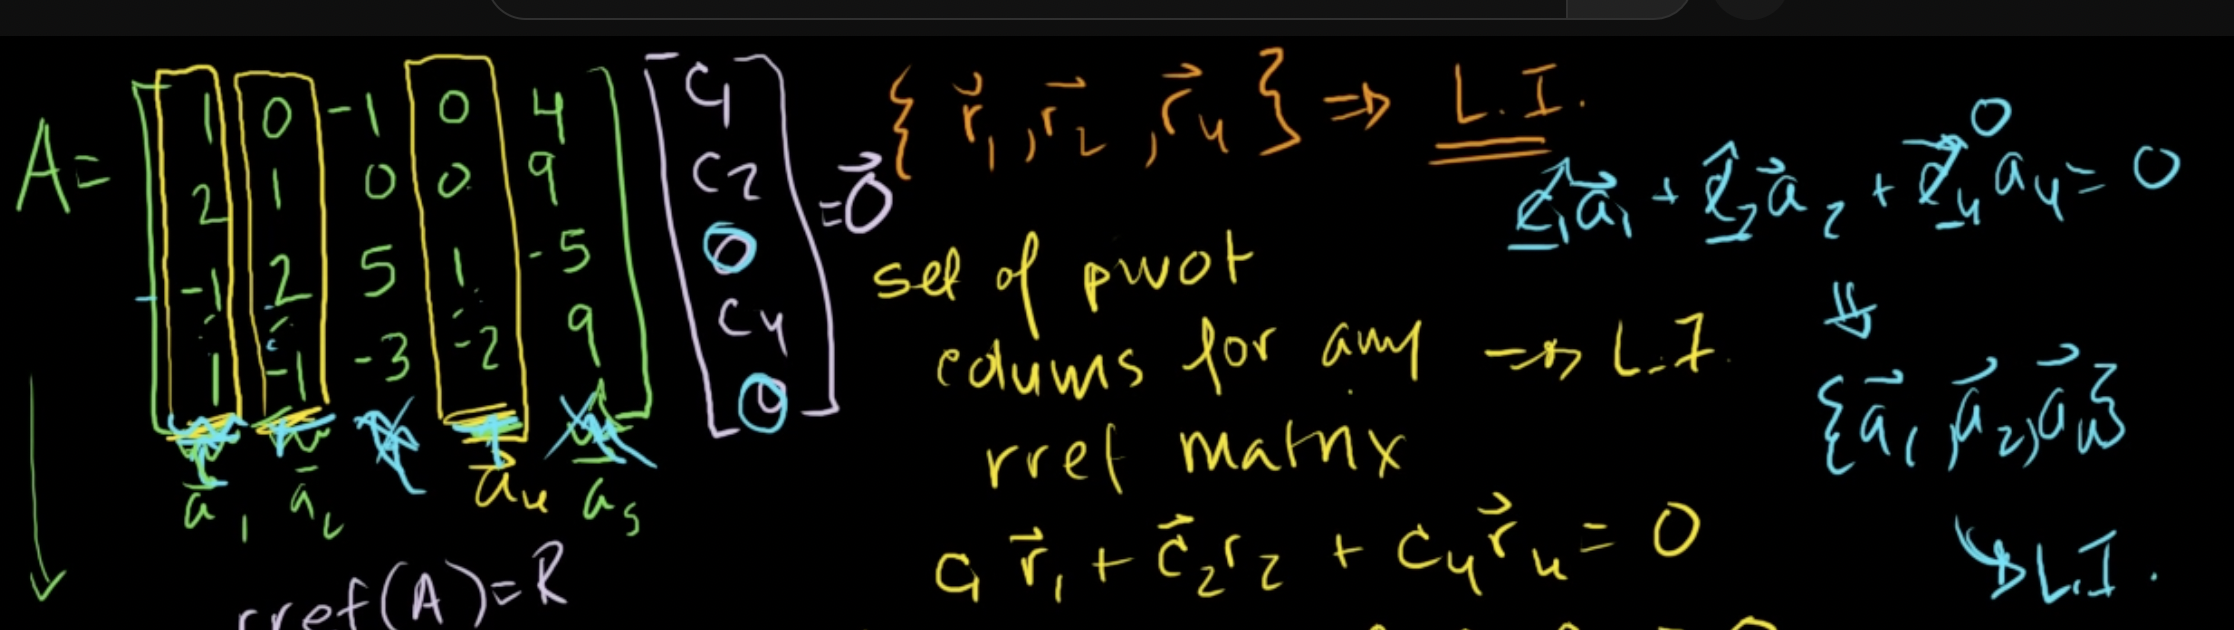 A = [ 1 0 -1 0 4
2 1 0 0 9
-1 2 5 1 -5
1 -1 -3 -2 9 ]
a₁ a₂ a₄ a₅
rref(A) = R
[ c₁
c₂
0
c₄
0 ] = 0
{ r₁, r₂, r₄ } ⇒ L.I.
set of pivot
colums for any → L.I.
rref matrix
c₁ r₁ + c₂ r₂ + c₄ r₄ = 0
0
c₁ a₁ + c₂ a₂ + c₄ a₄ = 0
⇓
{ a₁, a₂, a₄ }
→ L.I.